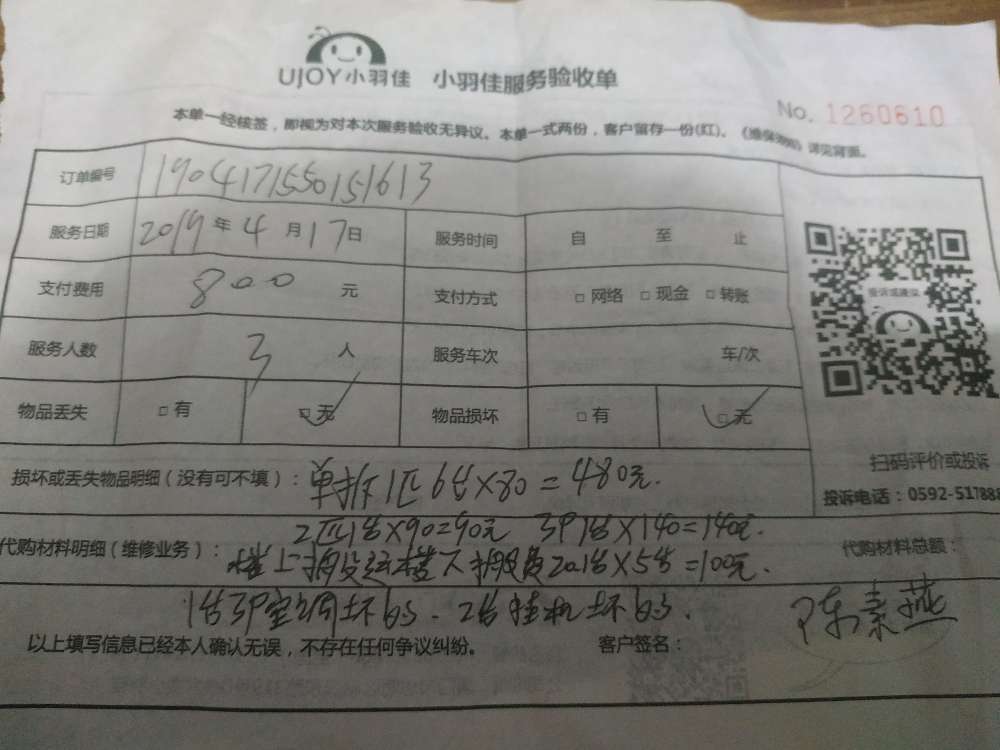 UJOY小羽佳 小羽佳服务验收单
No. 1260610
本单一经核签，即视为对本次服务验收无异议。本单一式两份，客户留存一份(红)。《维保须知》详见背面。
订单编号 1904171550151613
服务日期 2019年4月17日 服务时间 自 至 止
支付费用 800元 支付方式 □网络 □现金 □转账
服务人数 3人 服务车次 车/次
物品丢失 □有 □无 物品损坏 □有 □无
扫码评价或投诉
损坏或丢失物品明细（没有可不填）：单拆1匹6台×80=480元.
投诉电话：0592-517888
2匹1台×90=90元 3P1台×140=140元.
代购材料明细（维修业务）：楼上搬运楼下 20 1台×5台=100元.
代购材料总额：
1台3P空调坏的、2台挂机坏的.
以上填写信息已经本人确认无误，不存在任何争议纠纷。 客户签名： 陈素燕